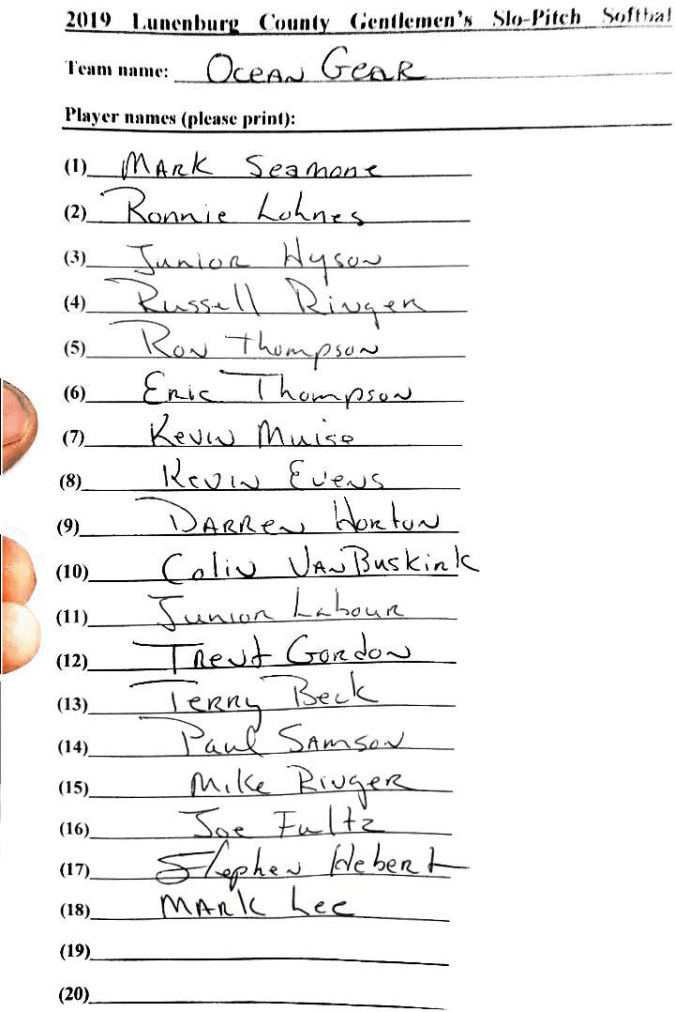 2019 Lunenburg County Gentlemen's Slo-Pitch Softbal
Team name: Ocean Gear
Player names (please print):
(1) Mark Seamone
(2) Ronnie Lohnes
(3) Junior Hyson
(4) Russell Ringer
(5) Ron Thompson
(6) Eric Thompson
(7) Kevin Muise
(8) Kevin Evens
(9) Darren Horton
(10) Colin VanBuskirk
(11) Junior Labour
(12) Trent Gordon
(13) Terry Beck
(14) Paul Samson
(15) Mike Ringer
(16) Joe Fultz
(17) Stephen Hebert
(18) Mark Lee
(19)
(20)